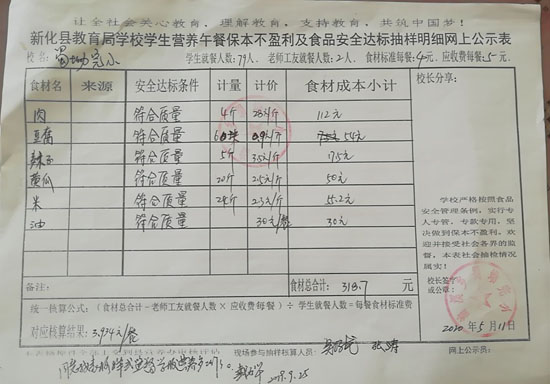 让全社会关心教育，理解教育，支持教育，共筑中国梦！
新化县教育局学校学生营养午餐保本不盈利及食品安全达标抽样明细网上公示表
校名: 完小 学生就餐人数:79人、老师工友就餐人数:2人、食材标准每餐:4元、应收费每餐:5元
食材名称 来源 安全达标条件 计量 计价 食材成本小计 校长分享:
肉 符合质量 4斤 28元/斤 112元
豆腐 符合质量 54元
辣子 符合质量 5斤 3.5元/斤 17.5
黄瓜 符合质量 20斤 2.5元/斤 50元
米 符合质量 24斤 2.3元/斤 55.2元
油 符合质量 30元/餐 30元
学校严格按照食品
安全管理条例，实行专
人专管，专款专用，坚
决做到保本不盈利，欢
迎并接受社会各界的监
督，本表社会抽检情况
属实！
备注: 食材总合计: 318.7 元
校长签字
或公章:
统一核算公式:（食材总合计-老师工友就餐人数×应收费每餐）÷学生就餐人数=每餐食材标准费
对应核算结果: 3.934元/餐 2020年5月11日
现场参与抽样核算人员: 网上公示员: